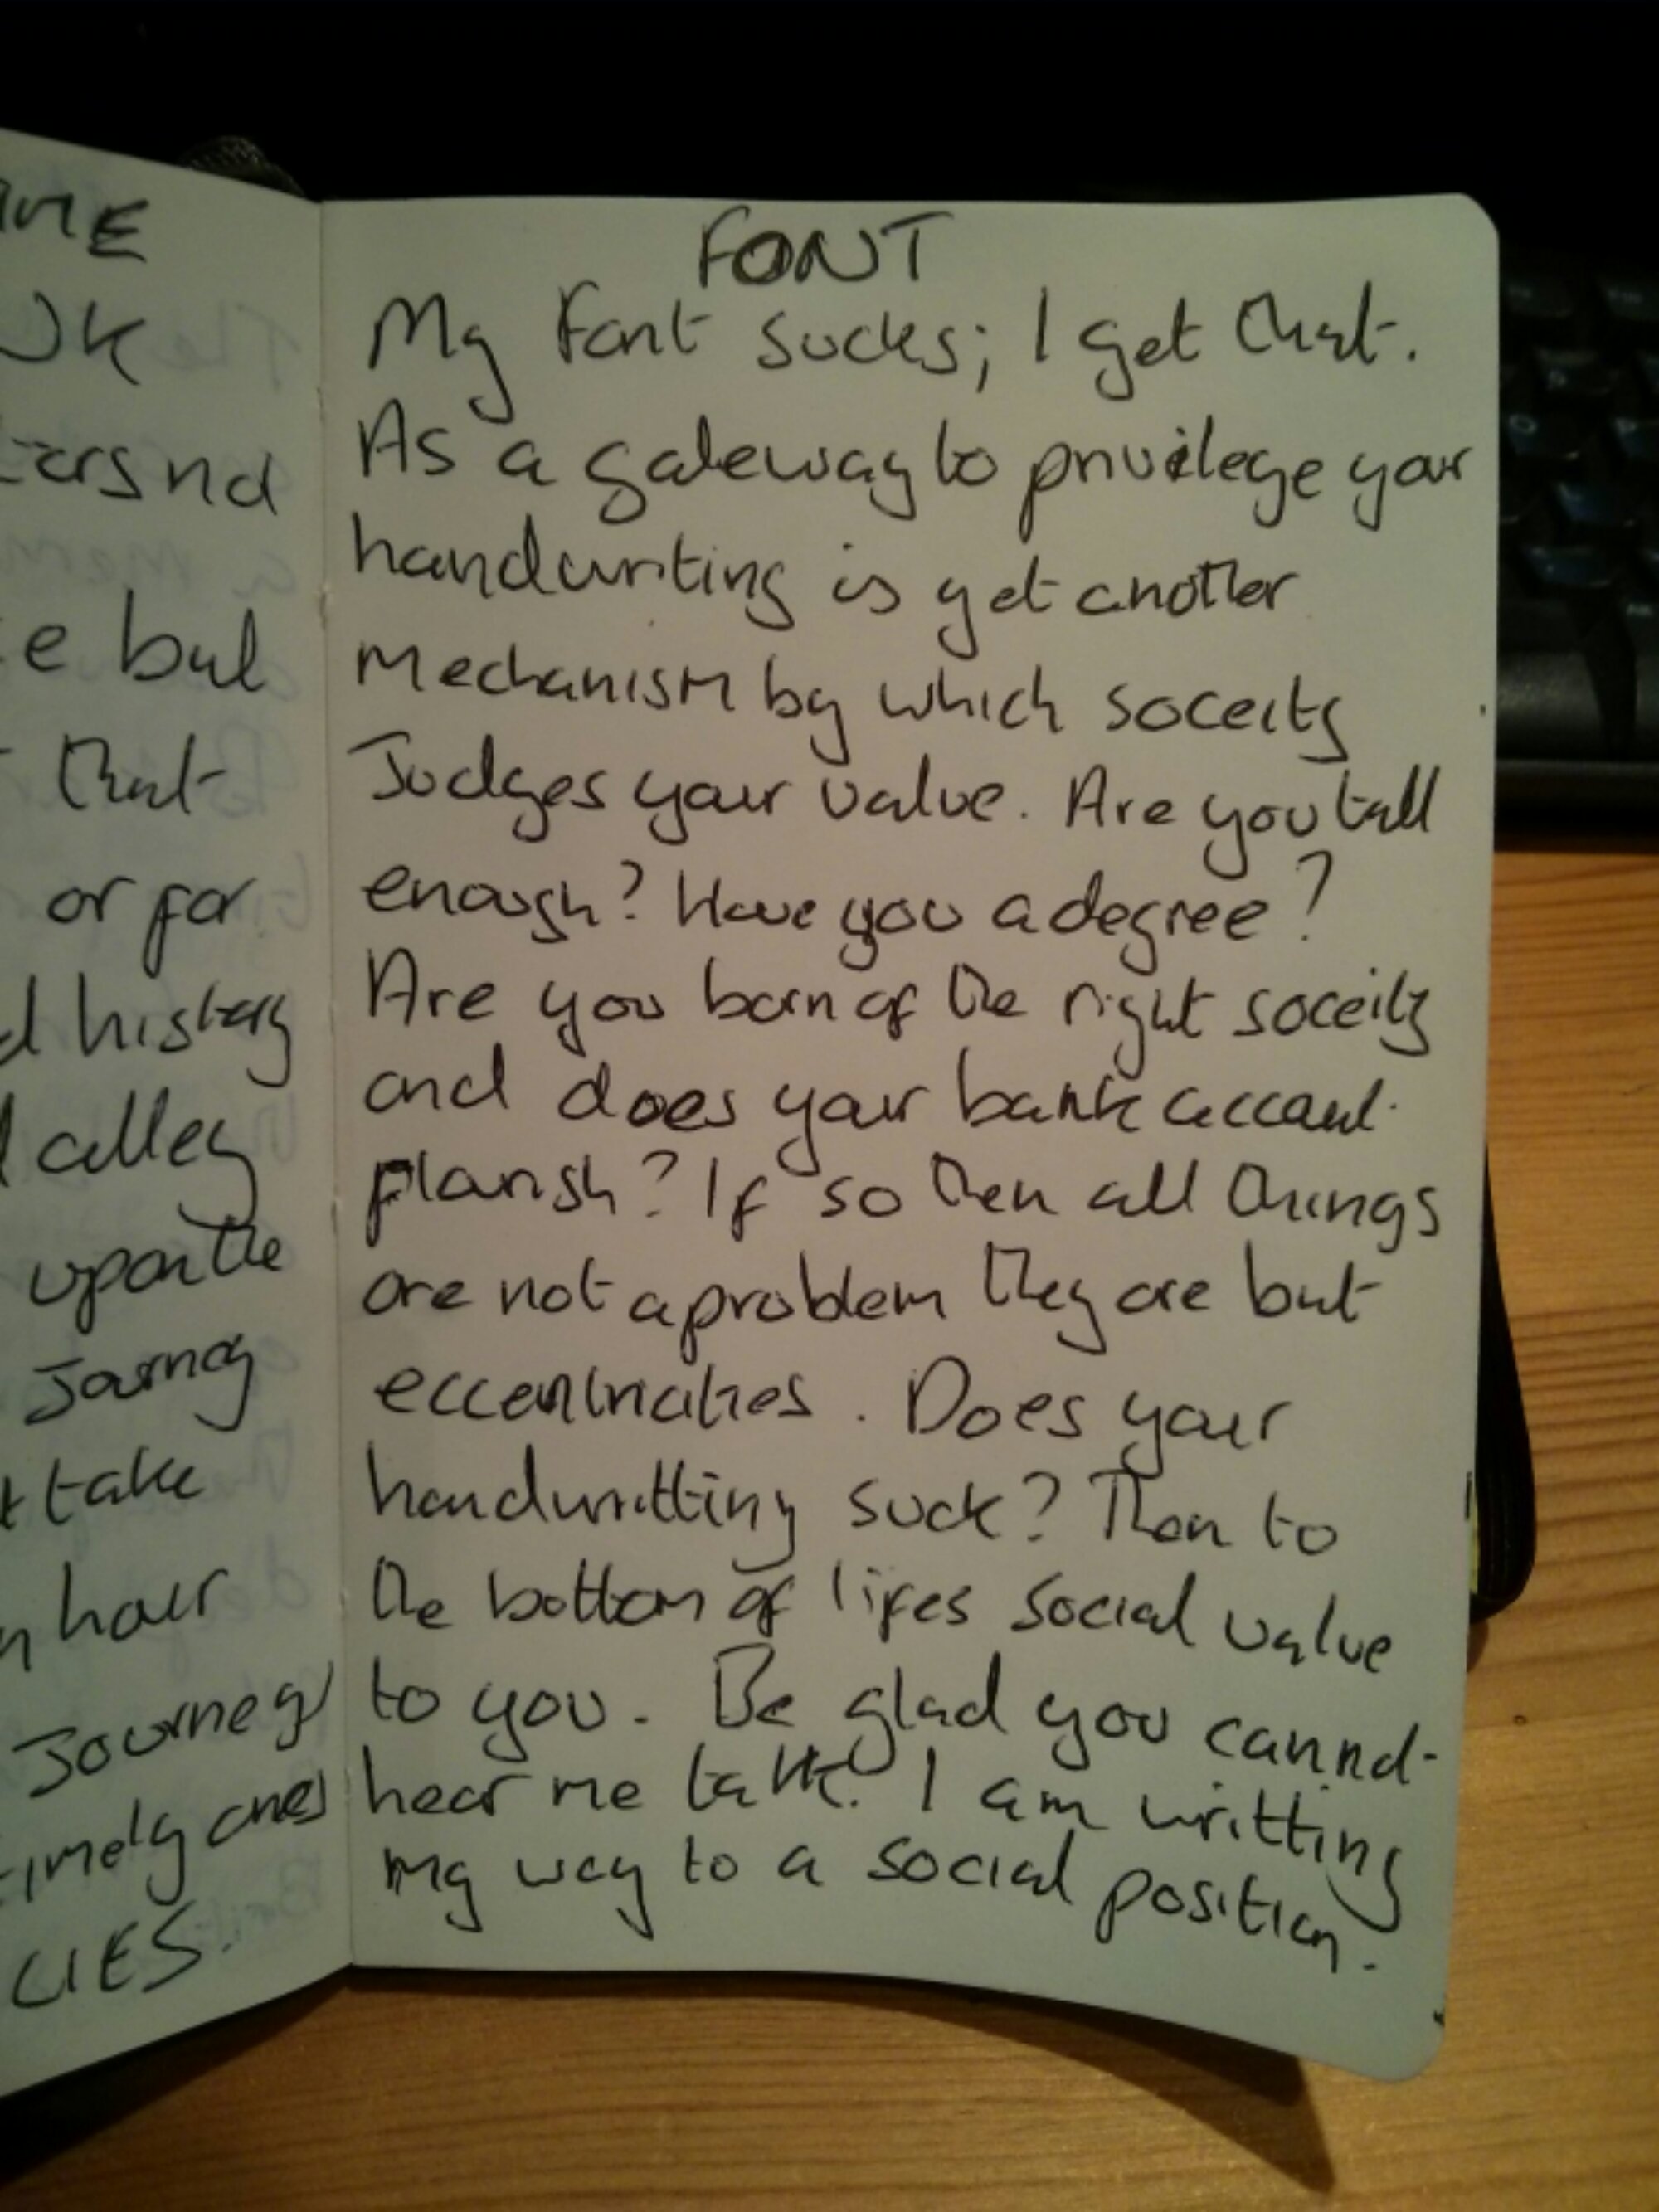 OK
but
that
or for
history
alley
upon the
Journey
take
hour
Journey
timely ones
LIES.
FONT
My Font sucks; I get that.
As a gateway to privilege your
handwriting is yet another
Mechanism by which soceity
Judges your value. Are you tall
enough? Have you a degree?
Are you born of the right soceity
and does your bank account
flourish? If so then all things
are not a problem they are but
eccentricities. Does your
handwritting suck? Then to
the bottom of lifes social value
to you. Be glad you cannot
hear me talk! I am writting
my way to a social position.